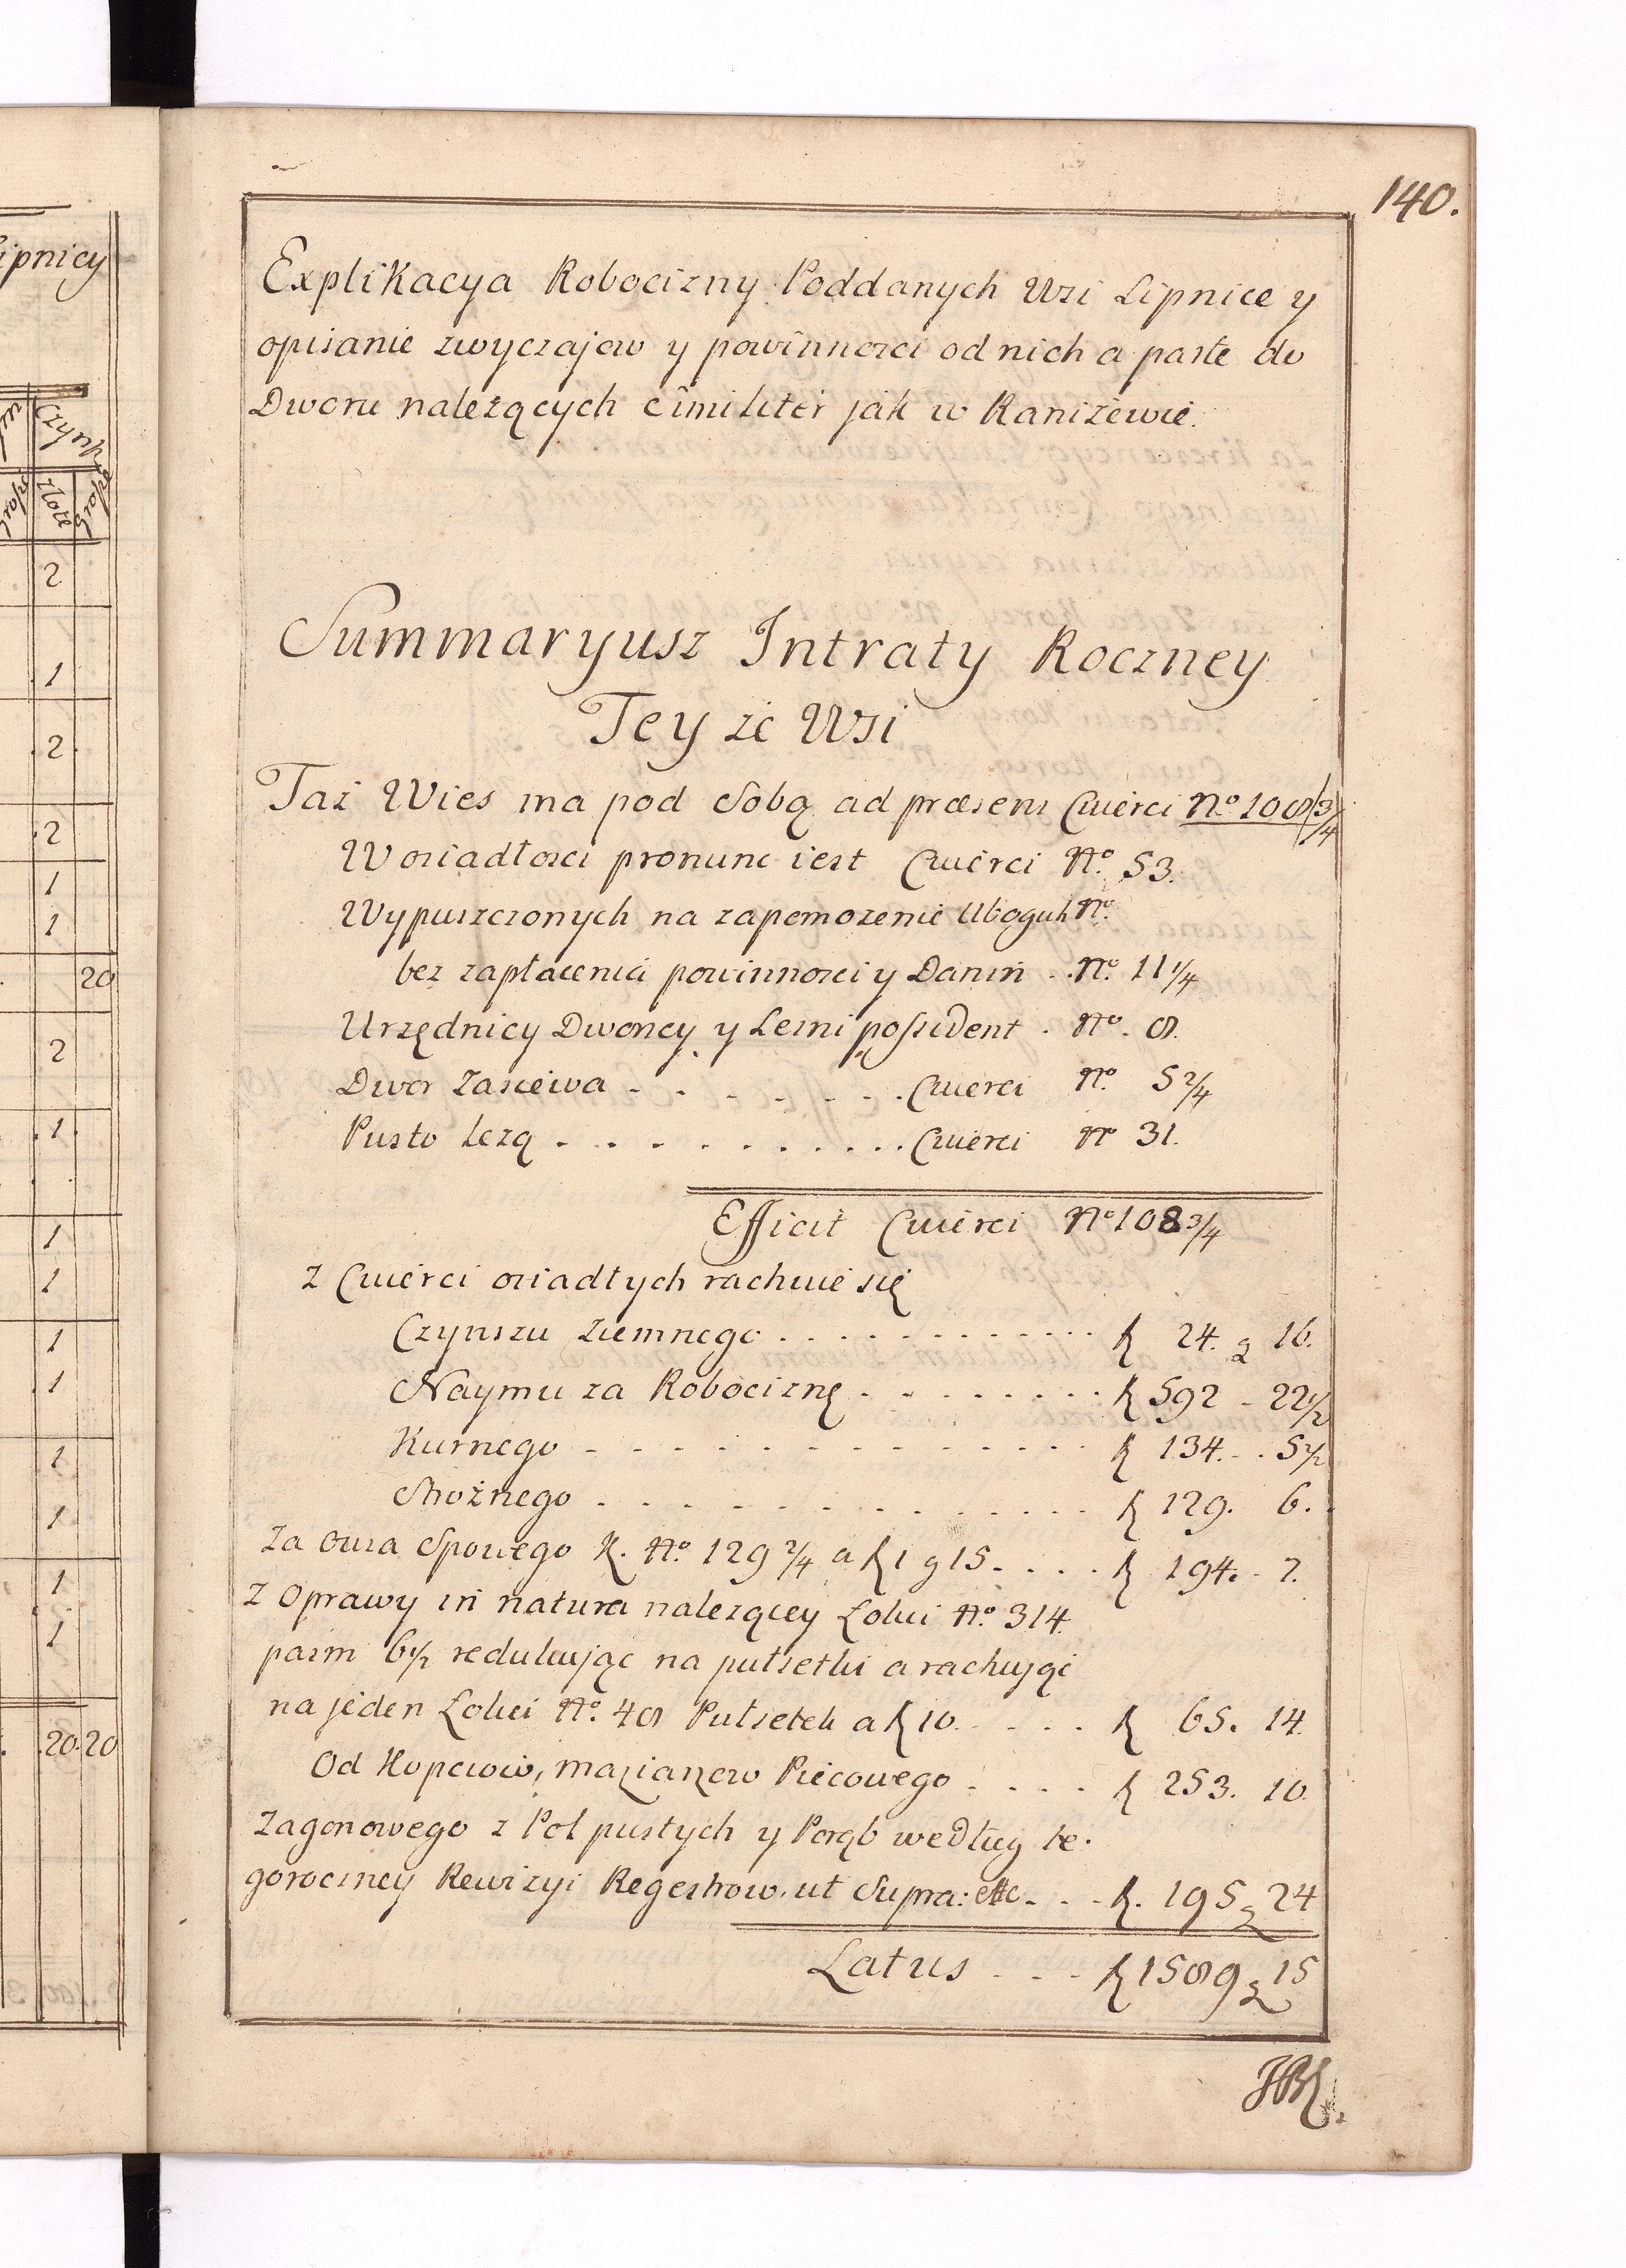 140.
Explikacya Robocizny Poddanych Wsi Lipnice y
opisanie zwyczajow y powinnosci od nich a parte do
Dworu należących cimiliter jak w Raniżewie.
Summaryusz Intraty Roczney
Tey że Wsi
Taż Wies ma pod Sobą ad præsens Cwierci No 108 3/4
W osiadłosci pronunc iest Cwierci No. 53.
Wypuszczonych na zapomożenie Ubogich No.
bez zapłacenia powinnosci y Danin . . No. 11 1/4
Urzędnicy Dworscy y Lesni possident . No. 8.
Dwor Zasiewa - - - - - - . Cwierci No 5 2/4
Pusto leżą . . . . . . . . Cwierci No 31.
Efficit Cwierci No 108 3/4
z Cwierci osiadłych rachuie się
Czynszu Ziemnego . . . . . . . . . . . . . 24. g 16.
Naymu za Robociznę . . . . . . . . 592 - 22 1/2
Kurnego - - - - - - - - - - - - 134. - . 5 1/2
Stróżnego . . . . . . . . . . . . 129. 6.
Za Owsa Spowego K. No. 129 2/4 a 1 g 15 . . . . 194. - 7.
Z Oprawy in natura należącey Łokci No. 314.
pasm 6 1/2 redukując na pułsetki a rachując
na jeden Łokci No. 48 Pułsetek a 10. . . . . 65. 14.
Od Kopcow, maziarzow Piecowego . . . . 253. 10.
Zagonowego z Pol pustych y Porąb według te.
goroczney Rewizyi Regestrow. ut Supra: etc . - - 195 g 24
Latus - - - 1589 g 15
ipnicy
Czynsz
złote
2
1
2
2
1
1
20
2
1
1
1
1
1
1
1
1
1
20 20